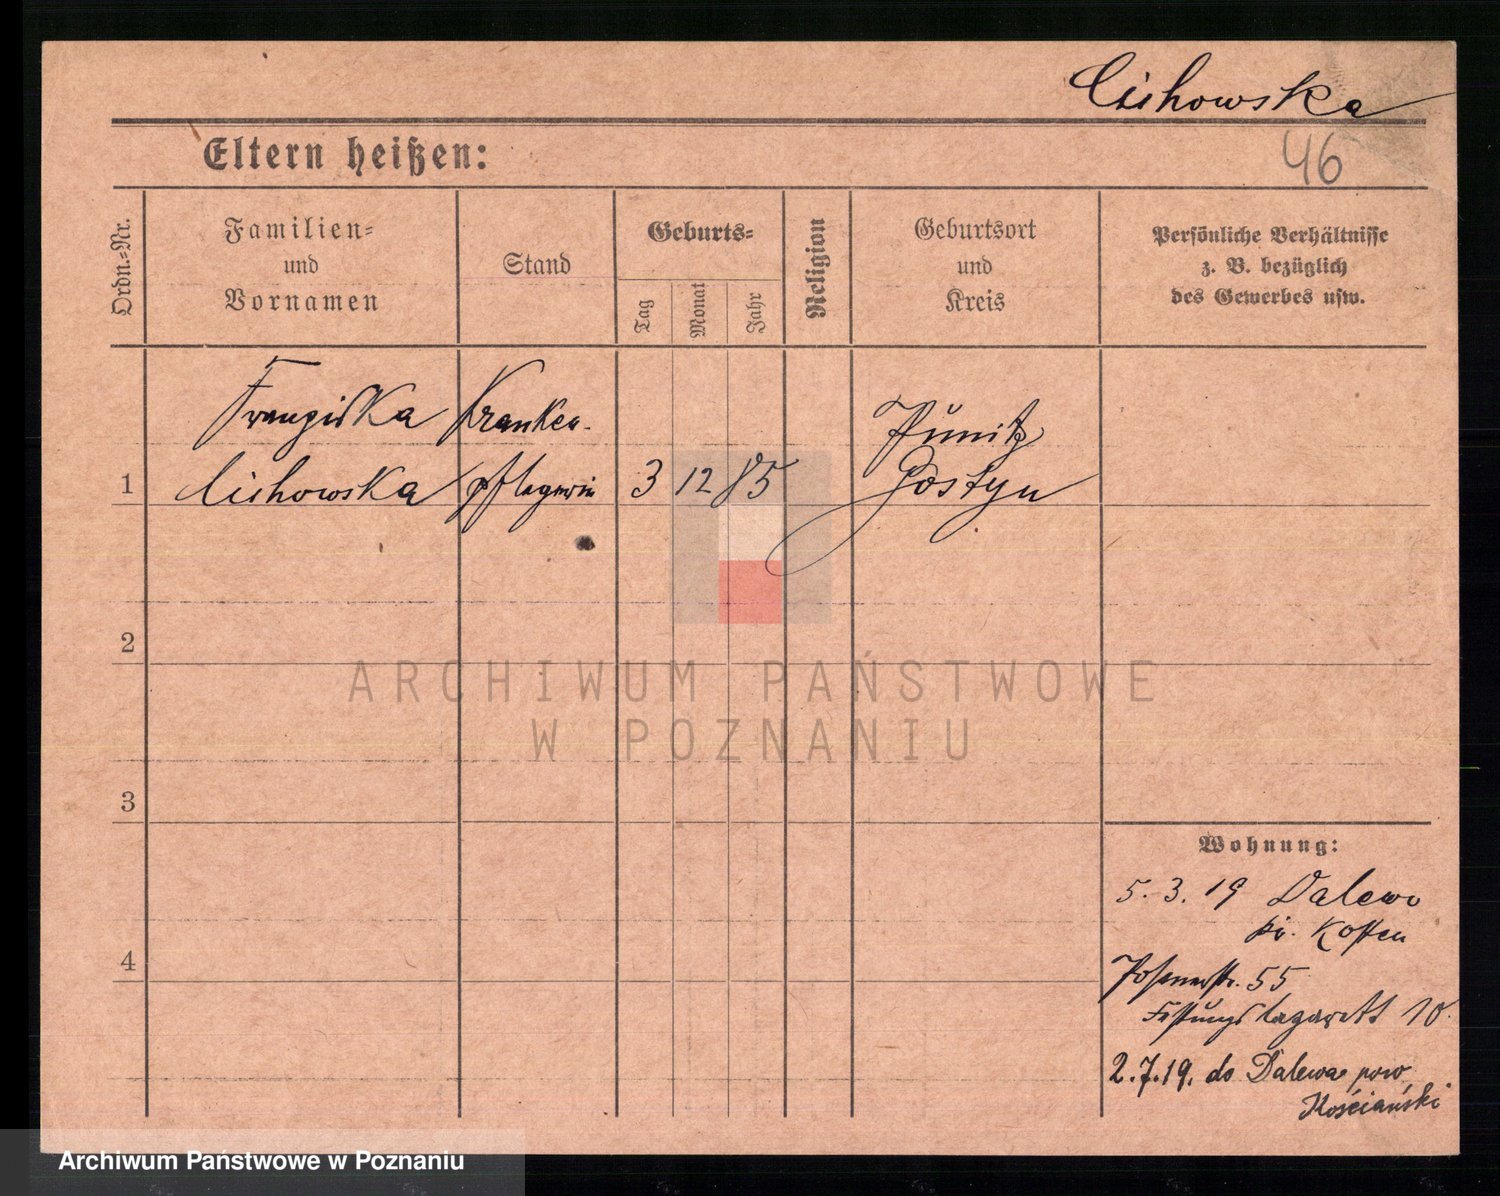 Cichowska
46
Eltern heißen:
Ordn.-Nr.
Familien-
und
Vornamen
Stand
Geburts-
Tag
Monat
Jahr
Religion
Geburtsort
und
Kreis
Persönliche Verhältnisse
z. B. bezüglich
des Gewerbes usw.
Franziska Kranken-
1 Cichowska pflegerin 3 12 85
Punitz
Gostyn
2
3
4
Wohnung:
5.3.19 Dalewo
Kr. Kosten
Posenerstr. 55
Festungslazarett 10.
2.7.19. do Dalewa pow
Kościański
ARCHIWUM PAŃSTWOWE
W POZNANIU
Archiwum Państwowe w Poznaniu